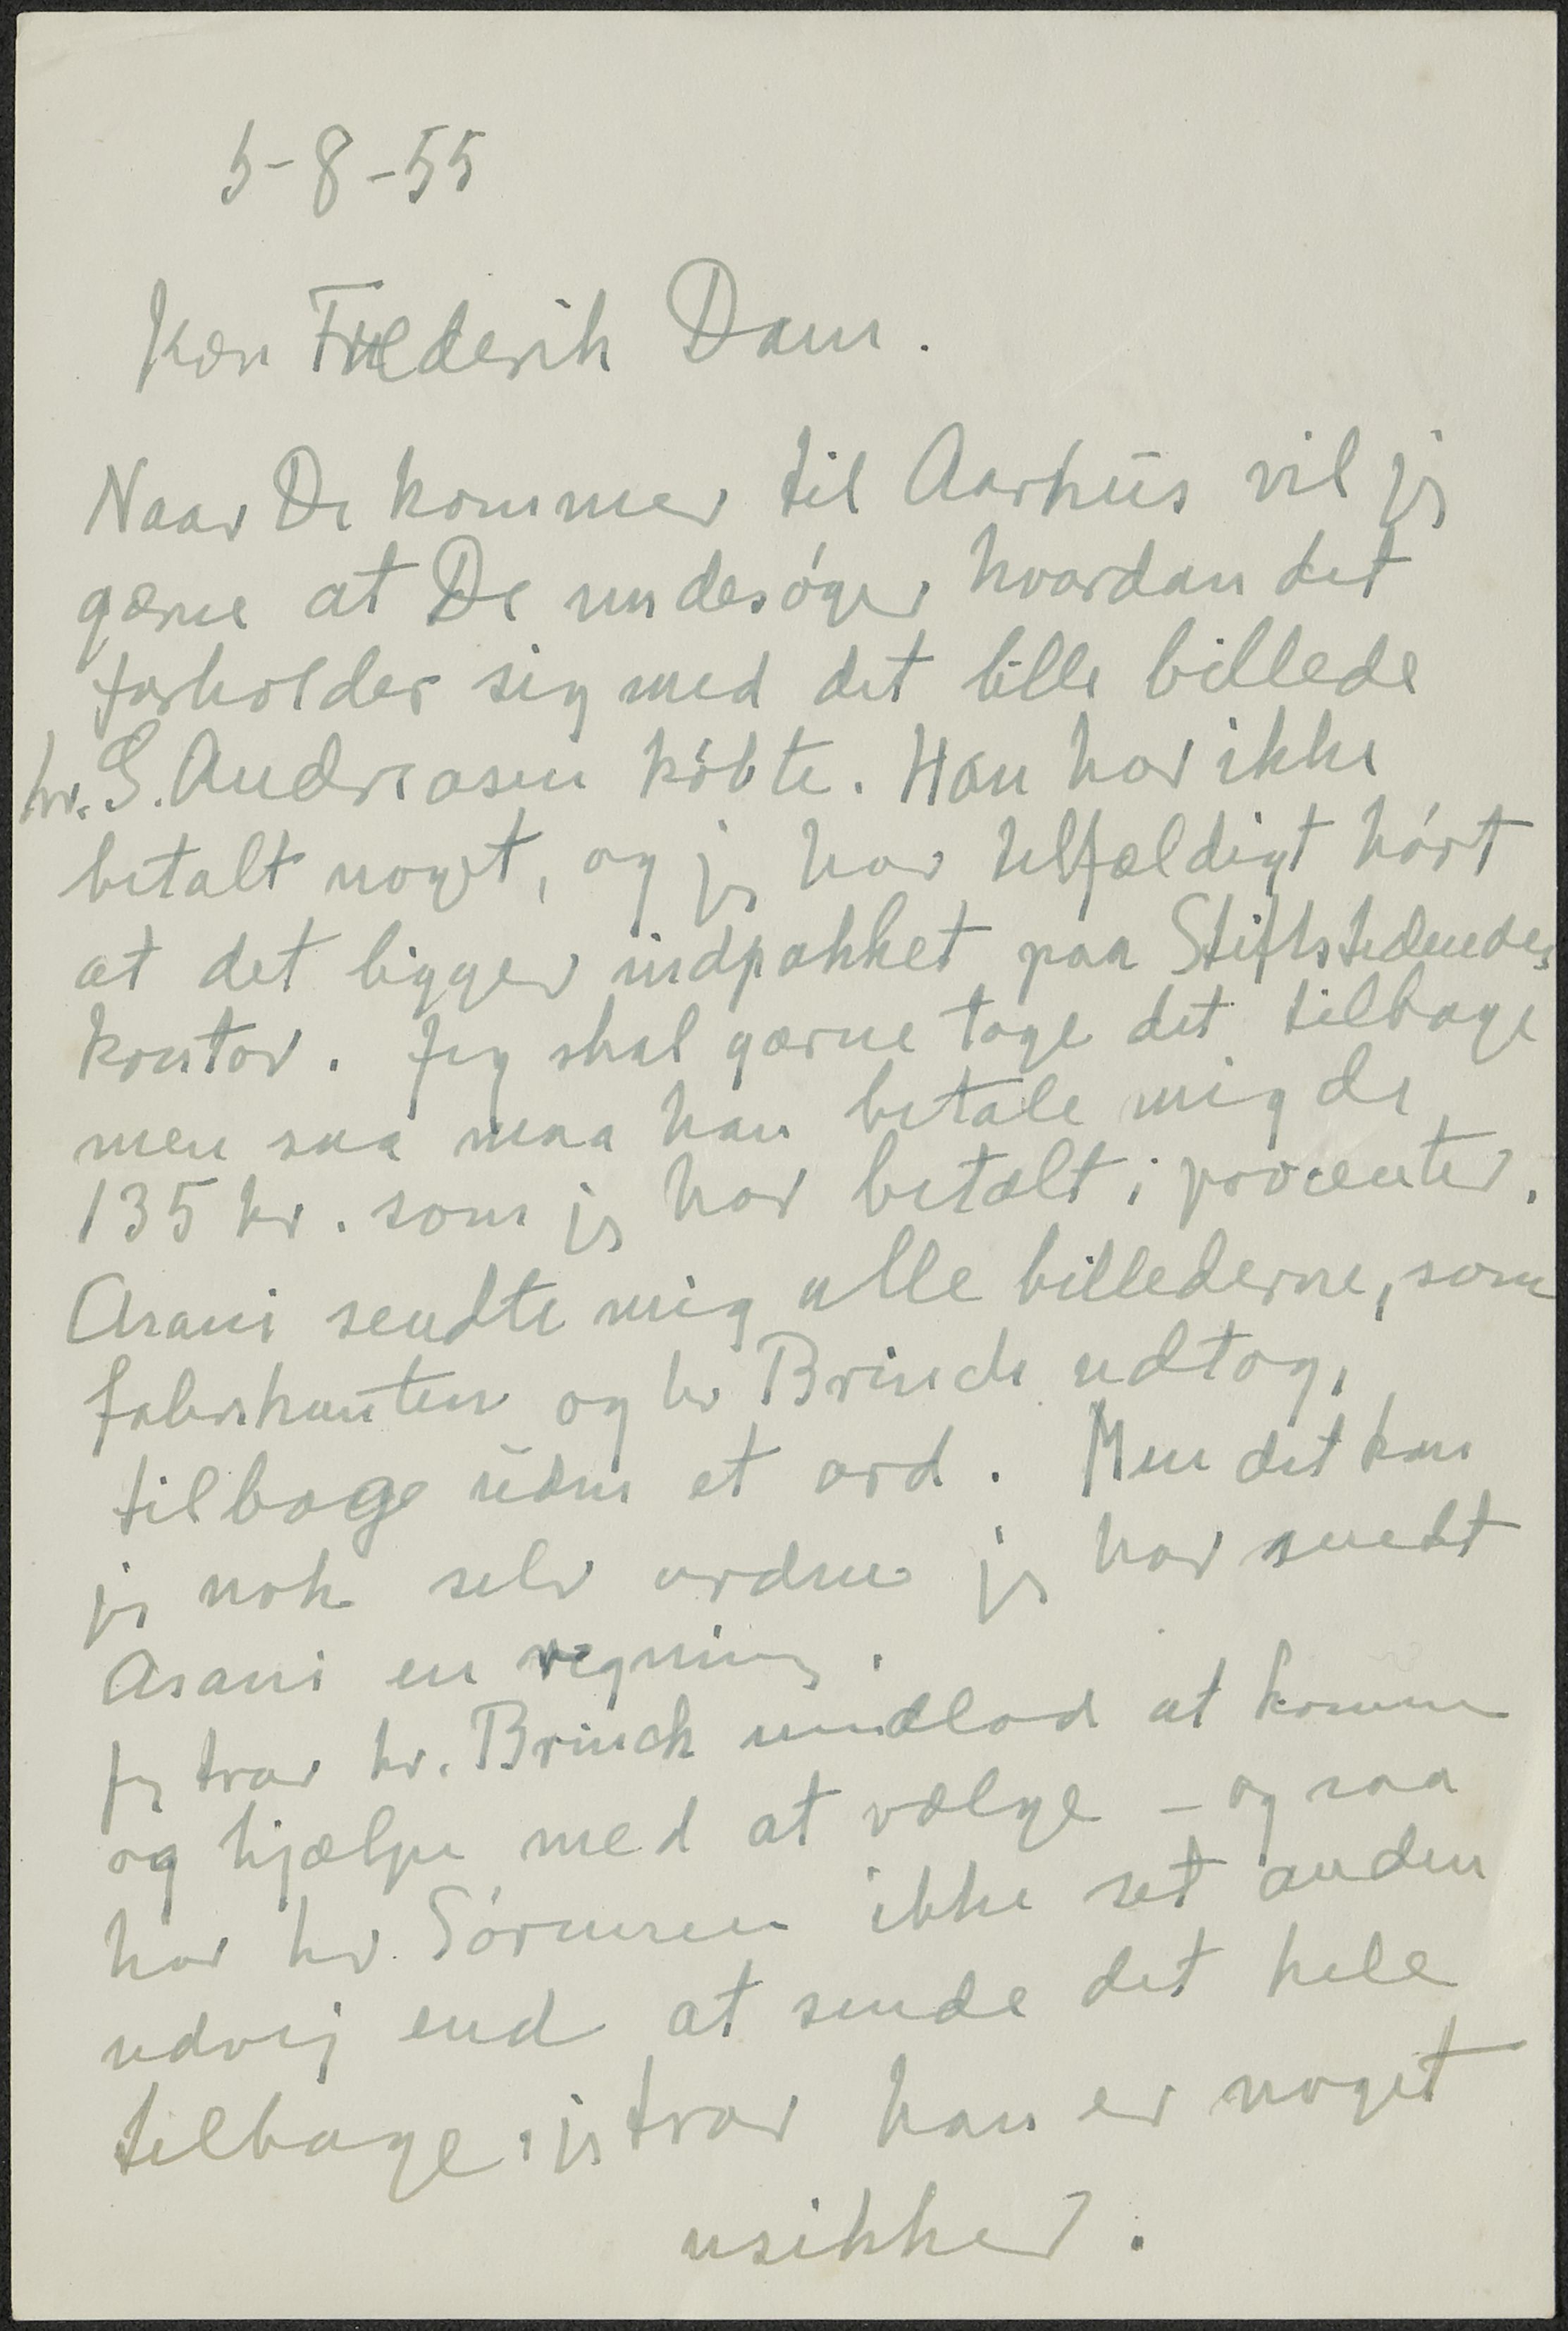 5-8-55
Kær Frederik Dam.
Naar De kommer til Aarhus vil jeg
gærne at De undesøger hvordan det
forholder sig med det lille billede
hr. G. Andreasen købte. Han har ikke
betalt noget, og jeg har tilfældigt hørt
at det ligger indpakket paa Stiftstidendes
kontor. Jeg skal gærne tage det tilbage
men saa maa han betale mig de
135 kr. som jeg har betalt i procenter.
Asani sendte mig alle billederne, som
fabrikanten og hr Brinck udtog,
tilbage uden et ord. Men det kan
jeg nok selv ordne jeg har sendt
Asani en regning.
jeg tror hr. Brinck undlod at komme
og hjælpe med at vælge - og saa
har hr. Sørensen ikke set anden
udvej end at sende det hele
tilbage, jeg tror han er noget
usikker.